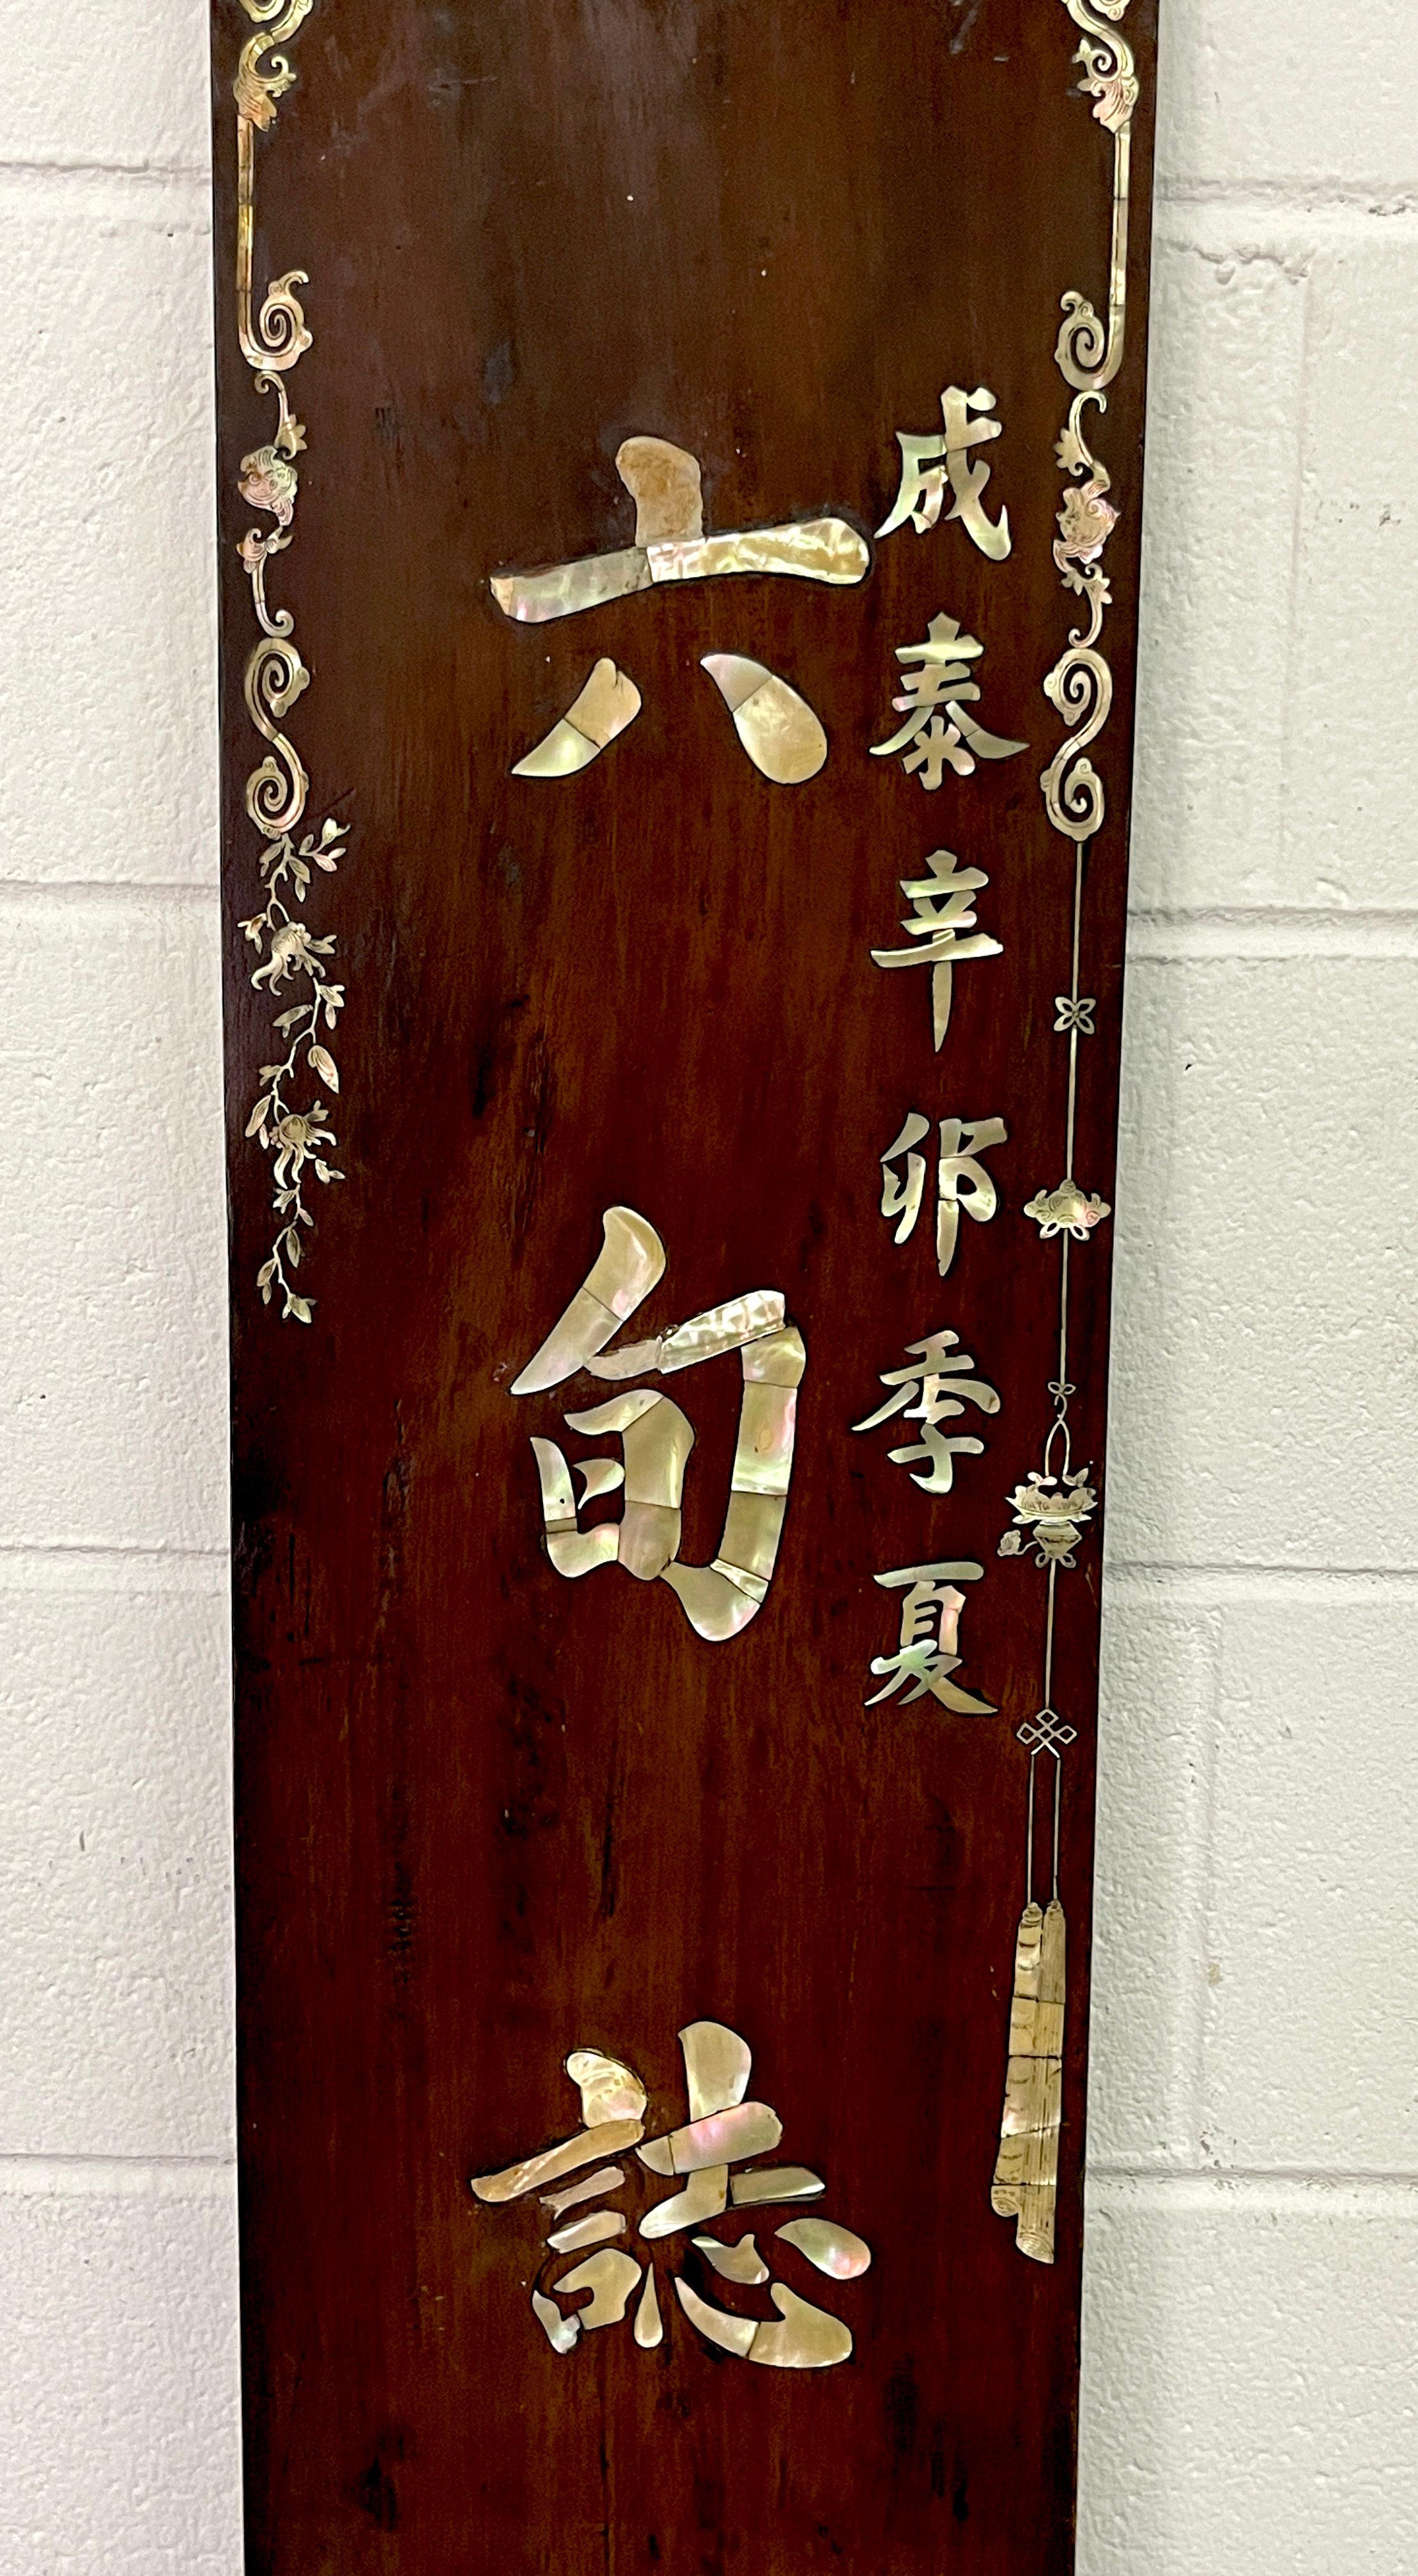 成泰辛卯季夏
六旬誌